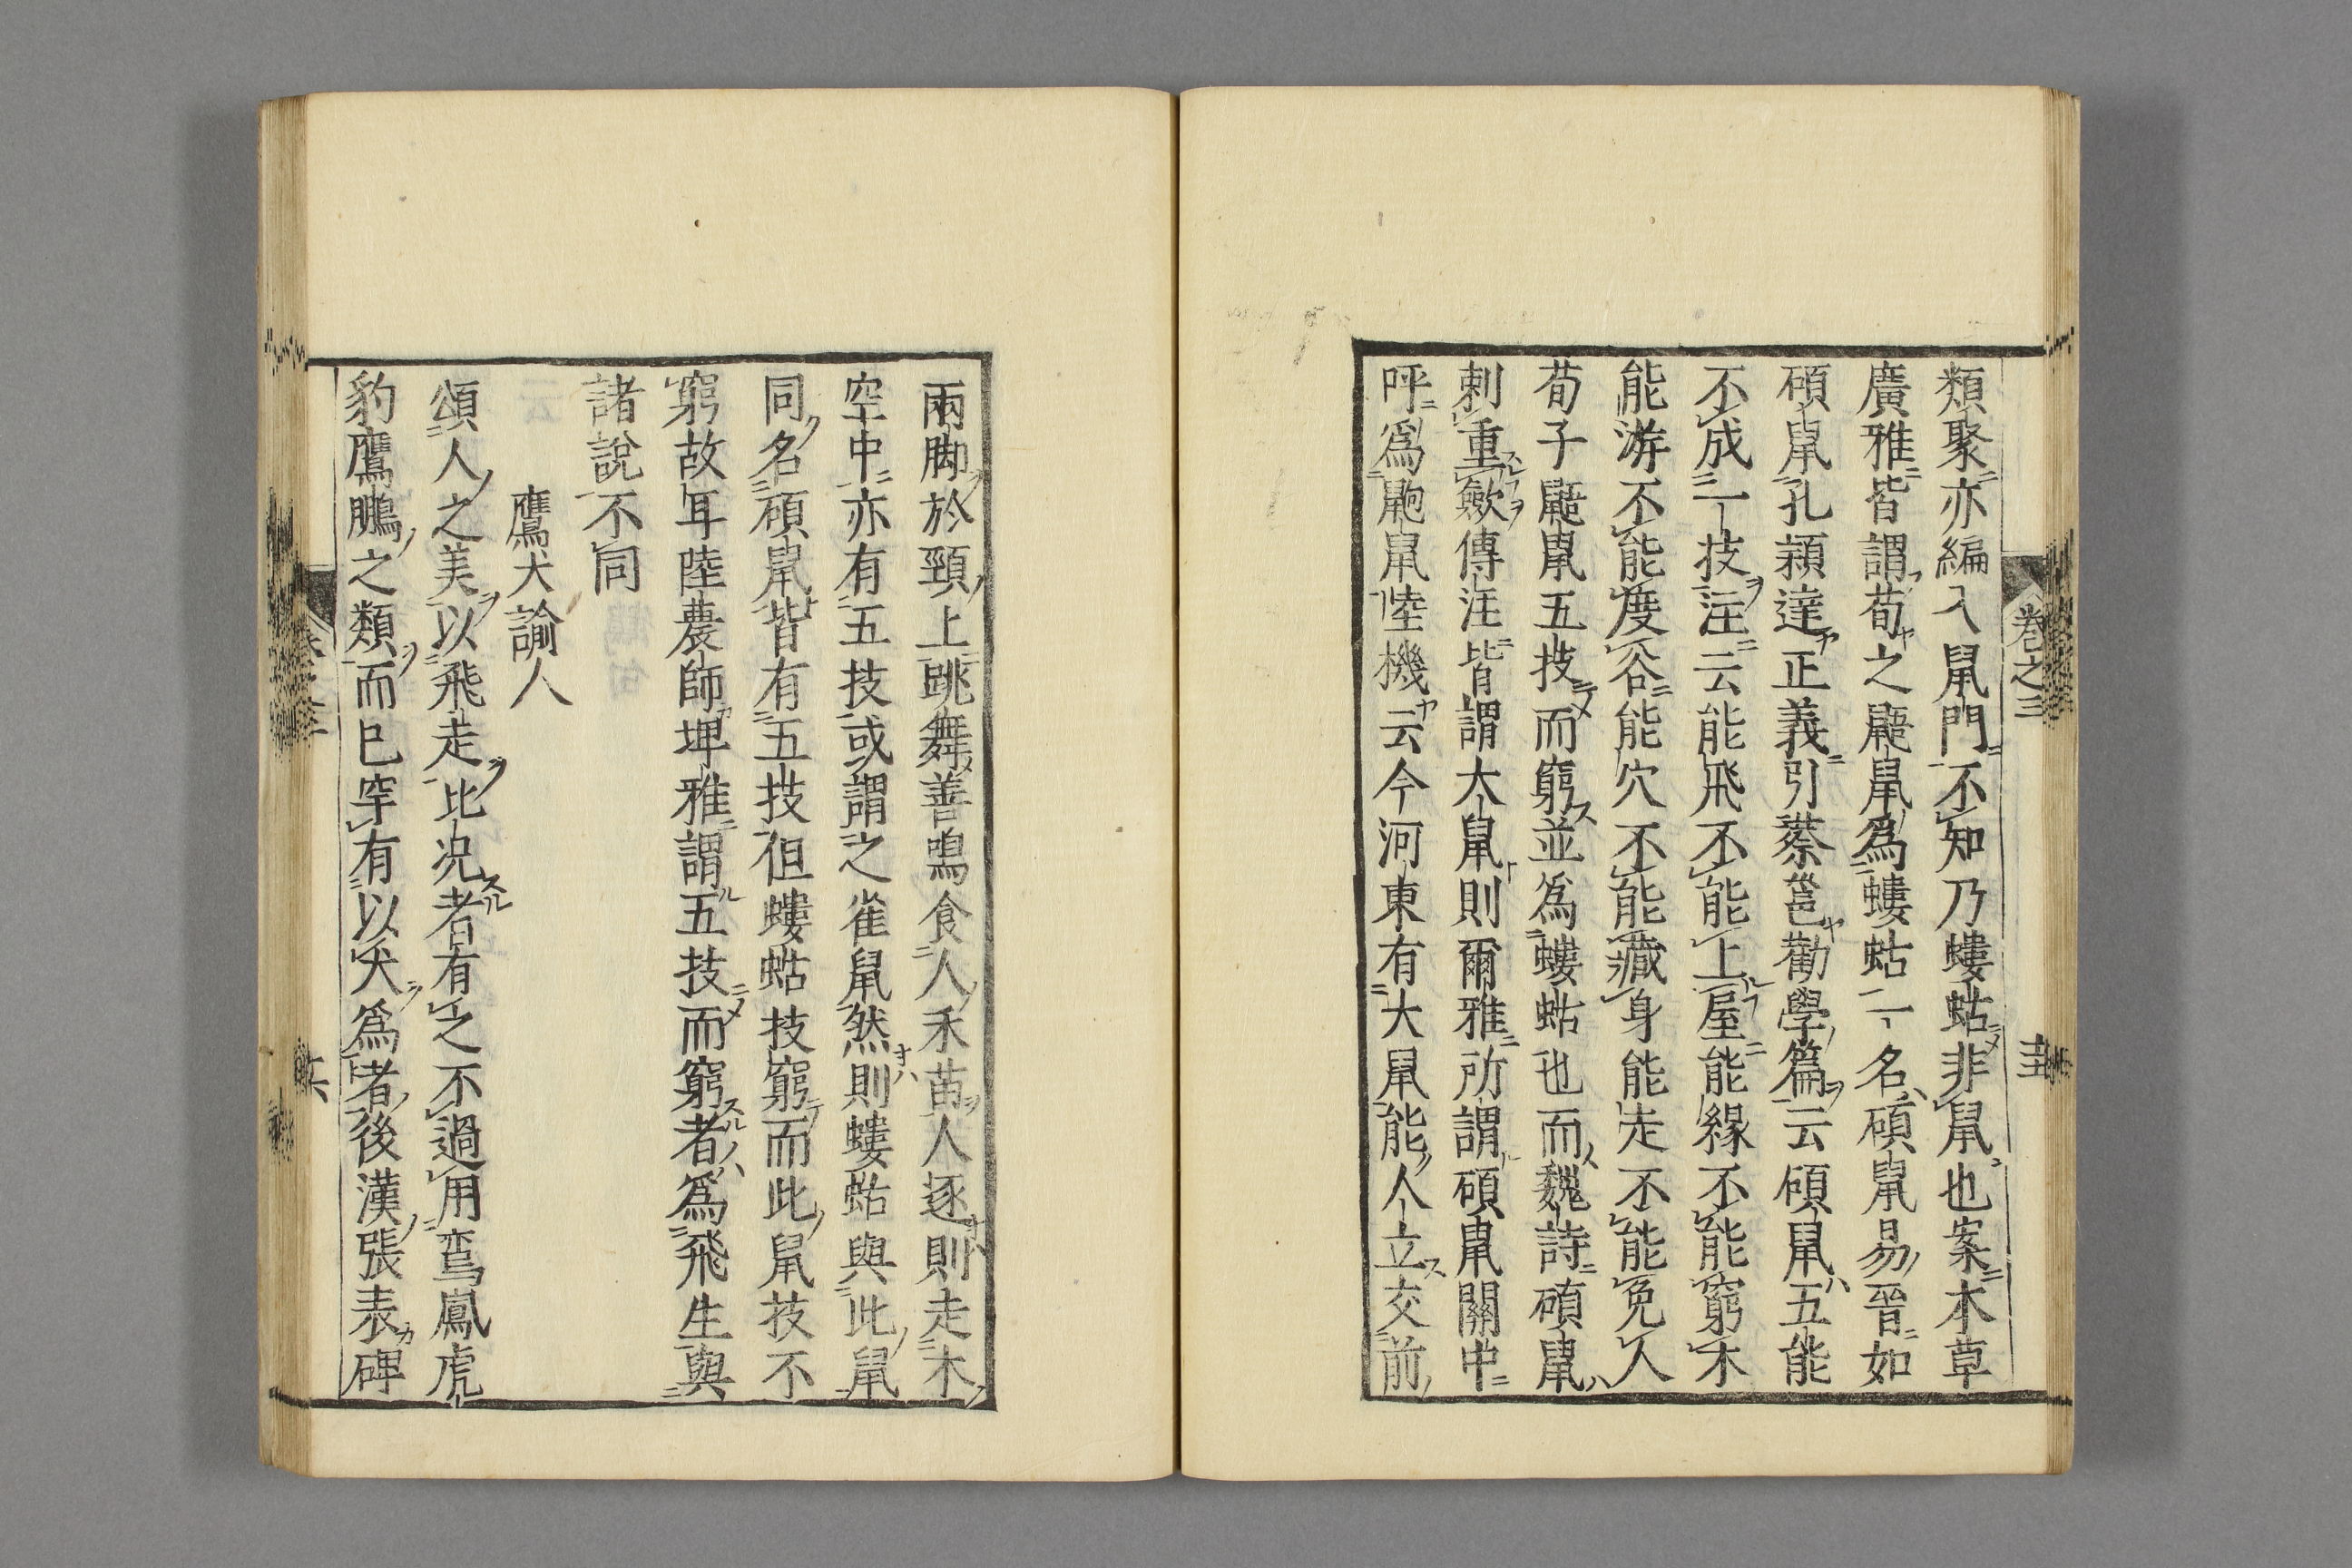 卷之三
類聚亦編入鼠門不知乃螻蛄非鼠也案本草
廣雅皆謂荀之鼯鼠爲螻蛄一名碩鼠易晉如
碩鼠孔穎達正義引蔡邕勸學篇云碩鼠五能
不成一技注云能飛不能上屋能緣不能窮木
能游不能度谷能穴不能藏身能走不能免人
荀子鼯鼠五技而窮並爲螻蛄也而魏詩碩鼠
刺重斂傳注皆謂大鼠則爾雅所謂碩鼠關中
呼爲鼩鼠陸機云今河東有大鼠能人立交前
兩脚於頸上跳舞善鳴食人禾苗人逐則走木
空中亦有五技或謂之雀鼠然則螻蛄與此鼠
同名碩鼠皆有五技但螻蛄技窮而此鼠技不
窮故耳陸農師埤雅謂五技而窮者爲飛生與
諸說不同
鷹犬諭人
頌人之美以飛走比况者有之不過用鸾鳳虎
豹鷹鵬之類而已罕有以犬爲者後漢張表碑